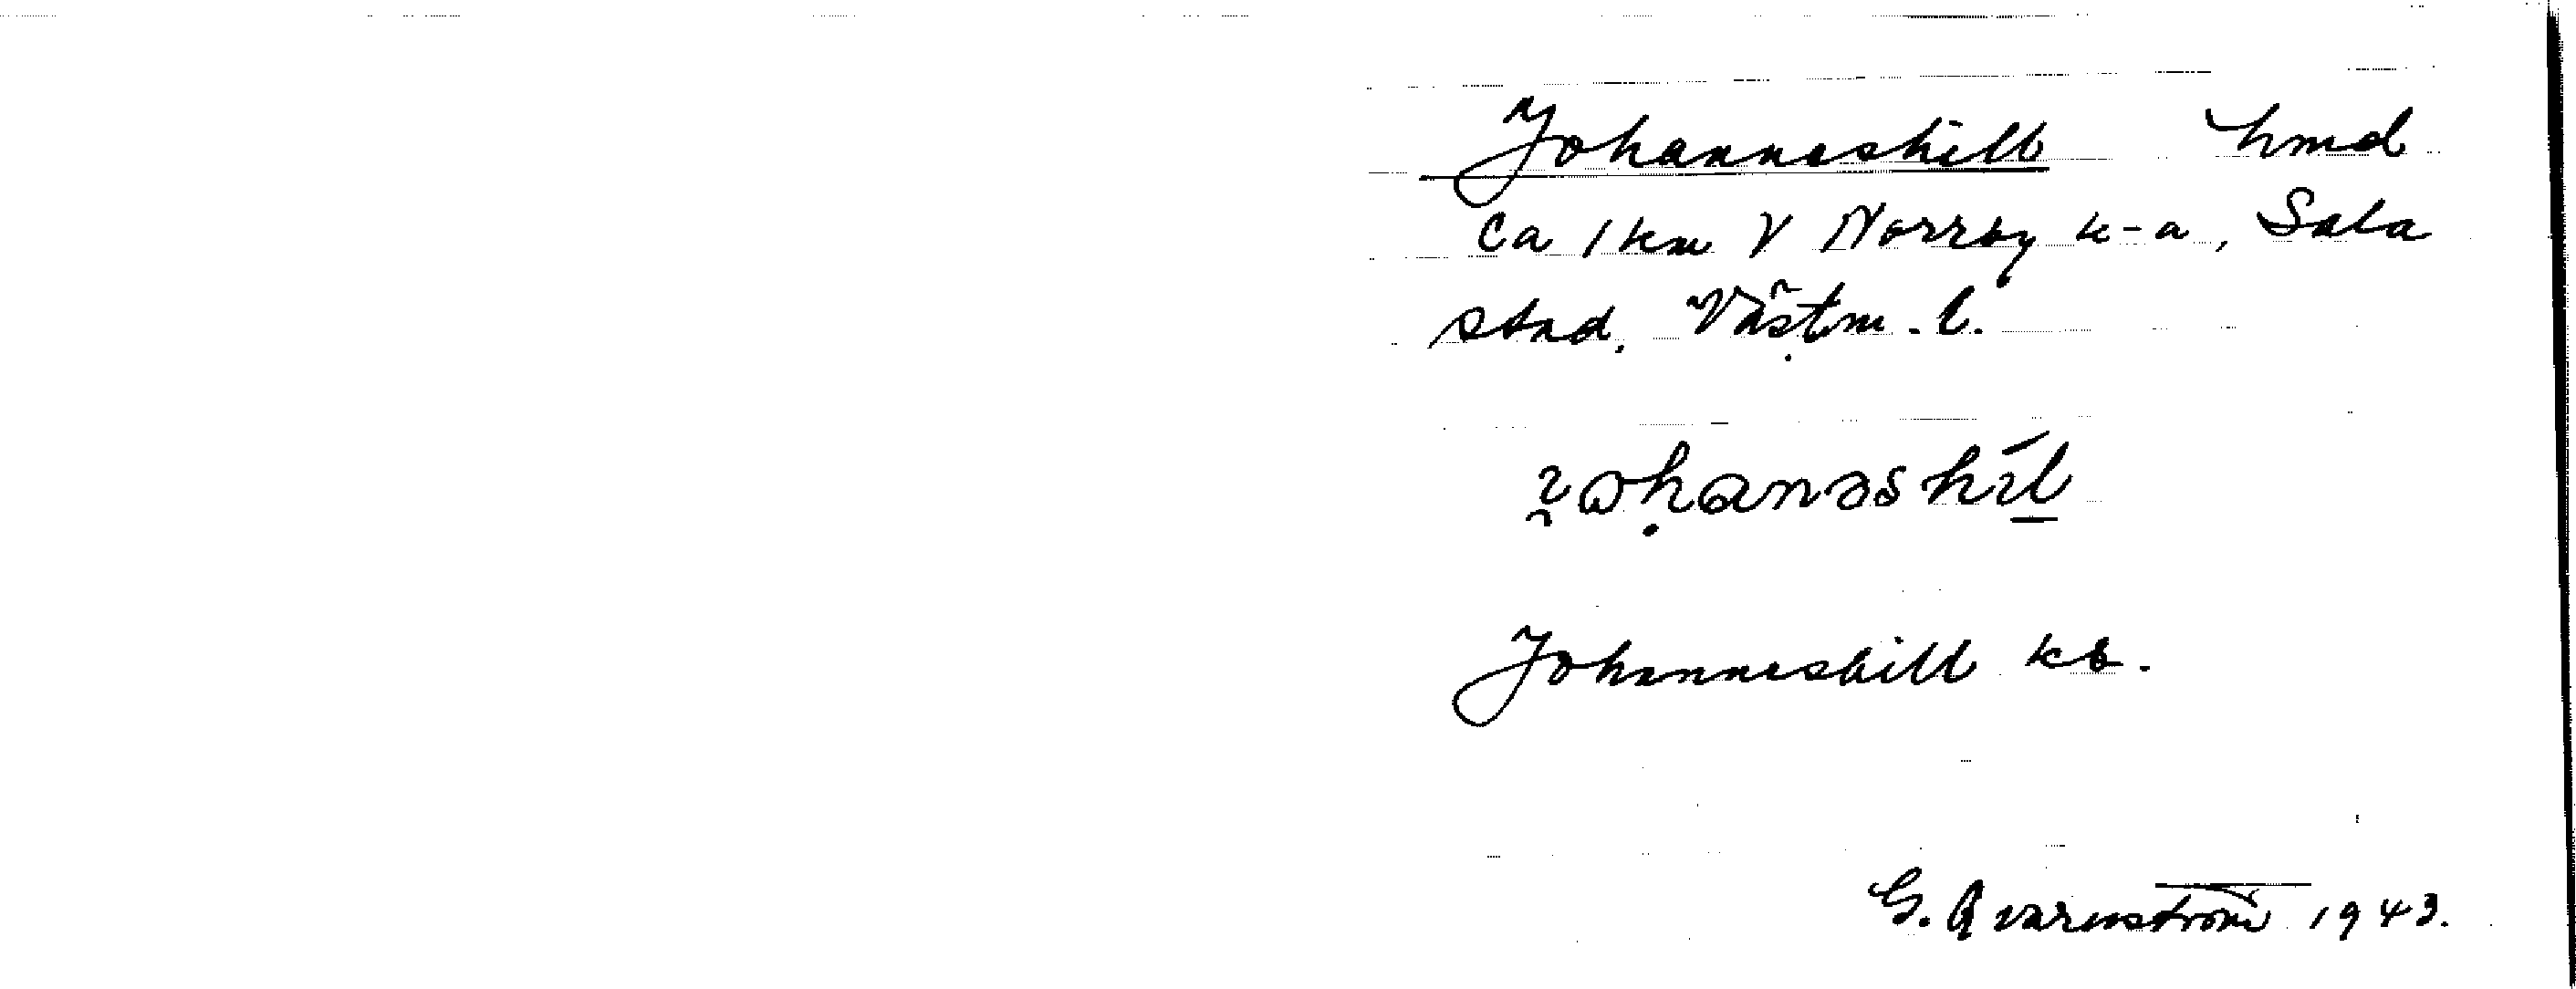 Johanneshill hmd
ca 1 km V Norrby k-a, Sala
stad. Västm. l.
Johanneshill kb.
G. Qvarnström 1943.